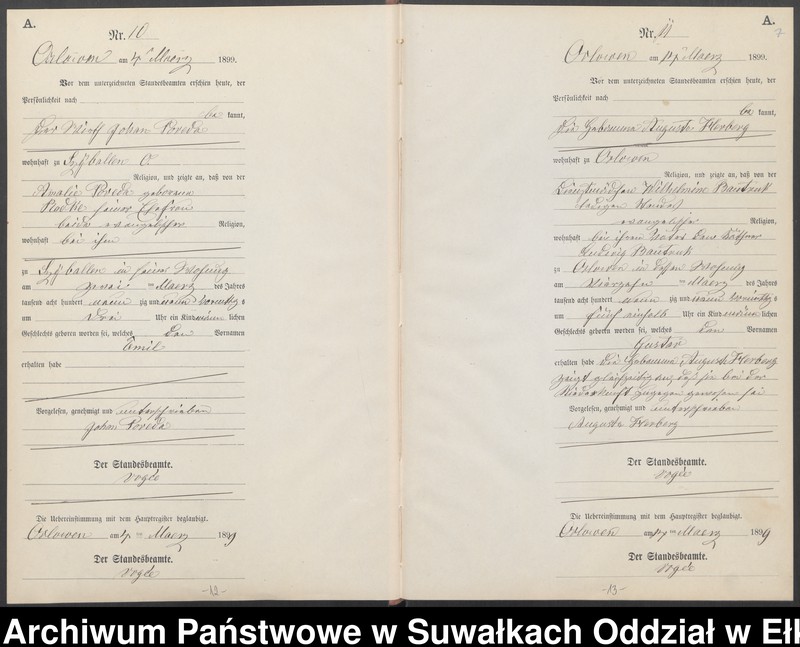 A.
Nr. 10
Orlowen am 4 ten Maerz 1899.
Vor dem unterzeichneten Standesbeamten erschien heute, der
Persönlichkeit nach
be kannt,
Der Wirth Johan Poreda
wohnhaft zu Szyballen O
Religion, und zeigte an, daß von der
Amalie Poreda geborene
seiner Ehefrau
beide evangelischer Religion,
wohnhaft bei ihm
zu Szyballen in seiner Wohnung
am zwei ten Maerz des Jahres
tausend acht hundert neun zig und neun Vormittag s
um drei Uhr ein Kind männ lichen
Geschlechts geboren worden sei, welches den Vornamen
Emil
erhalten habe
Vorgelesen, genehmigt und unterschrieben
Johan Poreda
Der Standesbeamte.
Vogée
Die Uebereinstimmung mit dem Hauptregister beglaubigt.
Orlowen am 4 ten Maerz 1899
Der Standesbeamte.
Vogée
-12-
A.
7
Nr. 11
Orlowen am 14 ten Maerz 1899.
Vor dem unterzeichneten Standesbeamten erschien heute, der
Persönlichkeit nach
be kannt,
Die Hebamme Auguste Herberg
wohnhaft zu Orlowen
Religion, und zeigte an, daß von der
Dienstmädchen Wilhelmine
ledigen Standes
evangelischer Religion,
wohnhaft bei ihrem Vater dem Käthner
Ludwig
zu Orlowen in dessen Wohnung
am Vierzehn ten Maerz des Jahres
tausend acht hundert neun zig und neun Vormittag s
um fünf einhalb Uhr ein Kind männ lichen
Geschlechts geboren worden sei, welches den Vornamen
Gustav
erhalten habe Die Hebamme Auguste Herberg
zeigt gleichzeitig an, daß sie bei der
Niederkunft zugegen gewesen sei
Vorgelesen, genehmigt und unterschrieben
Auguste Herberg
Der Standesbeamte.
Vogée
Die Uebereinstimmung mit dem Hauptregister beglaubigt.
Orlowen am 14 ten Maerz 1899
Der Standesbeamte.
Vogée
-13-
Archiwum Państwowe w Suwałkach Oddział w Ełk